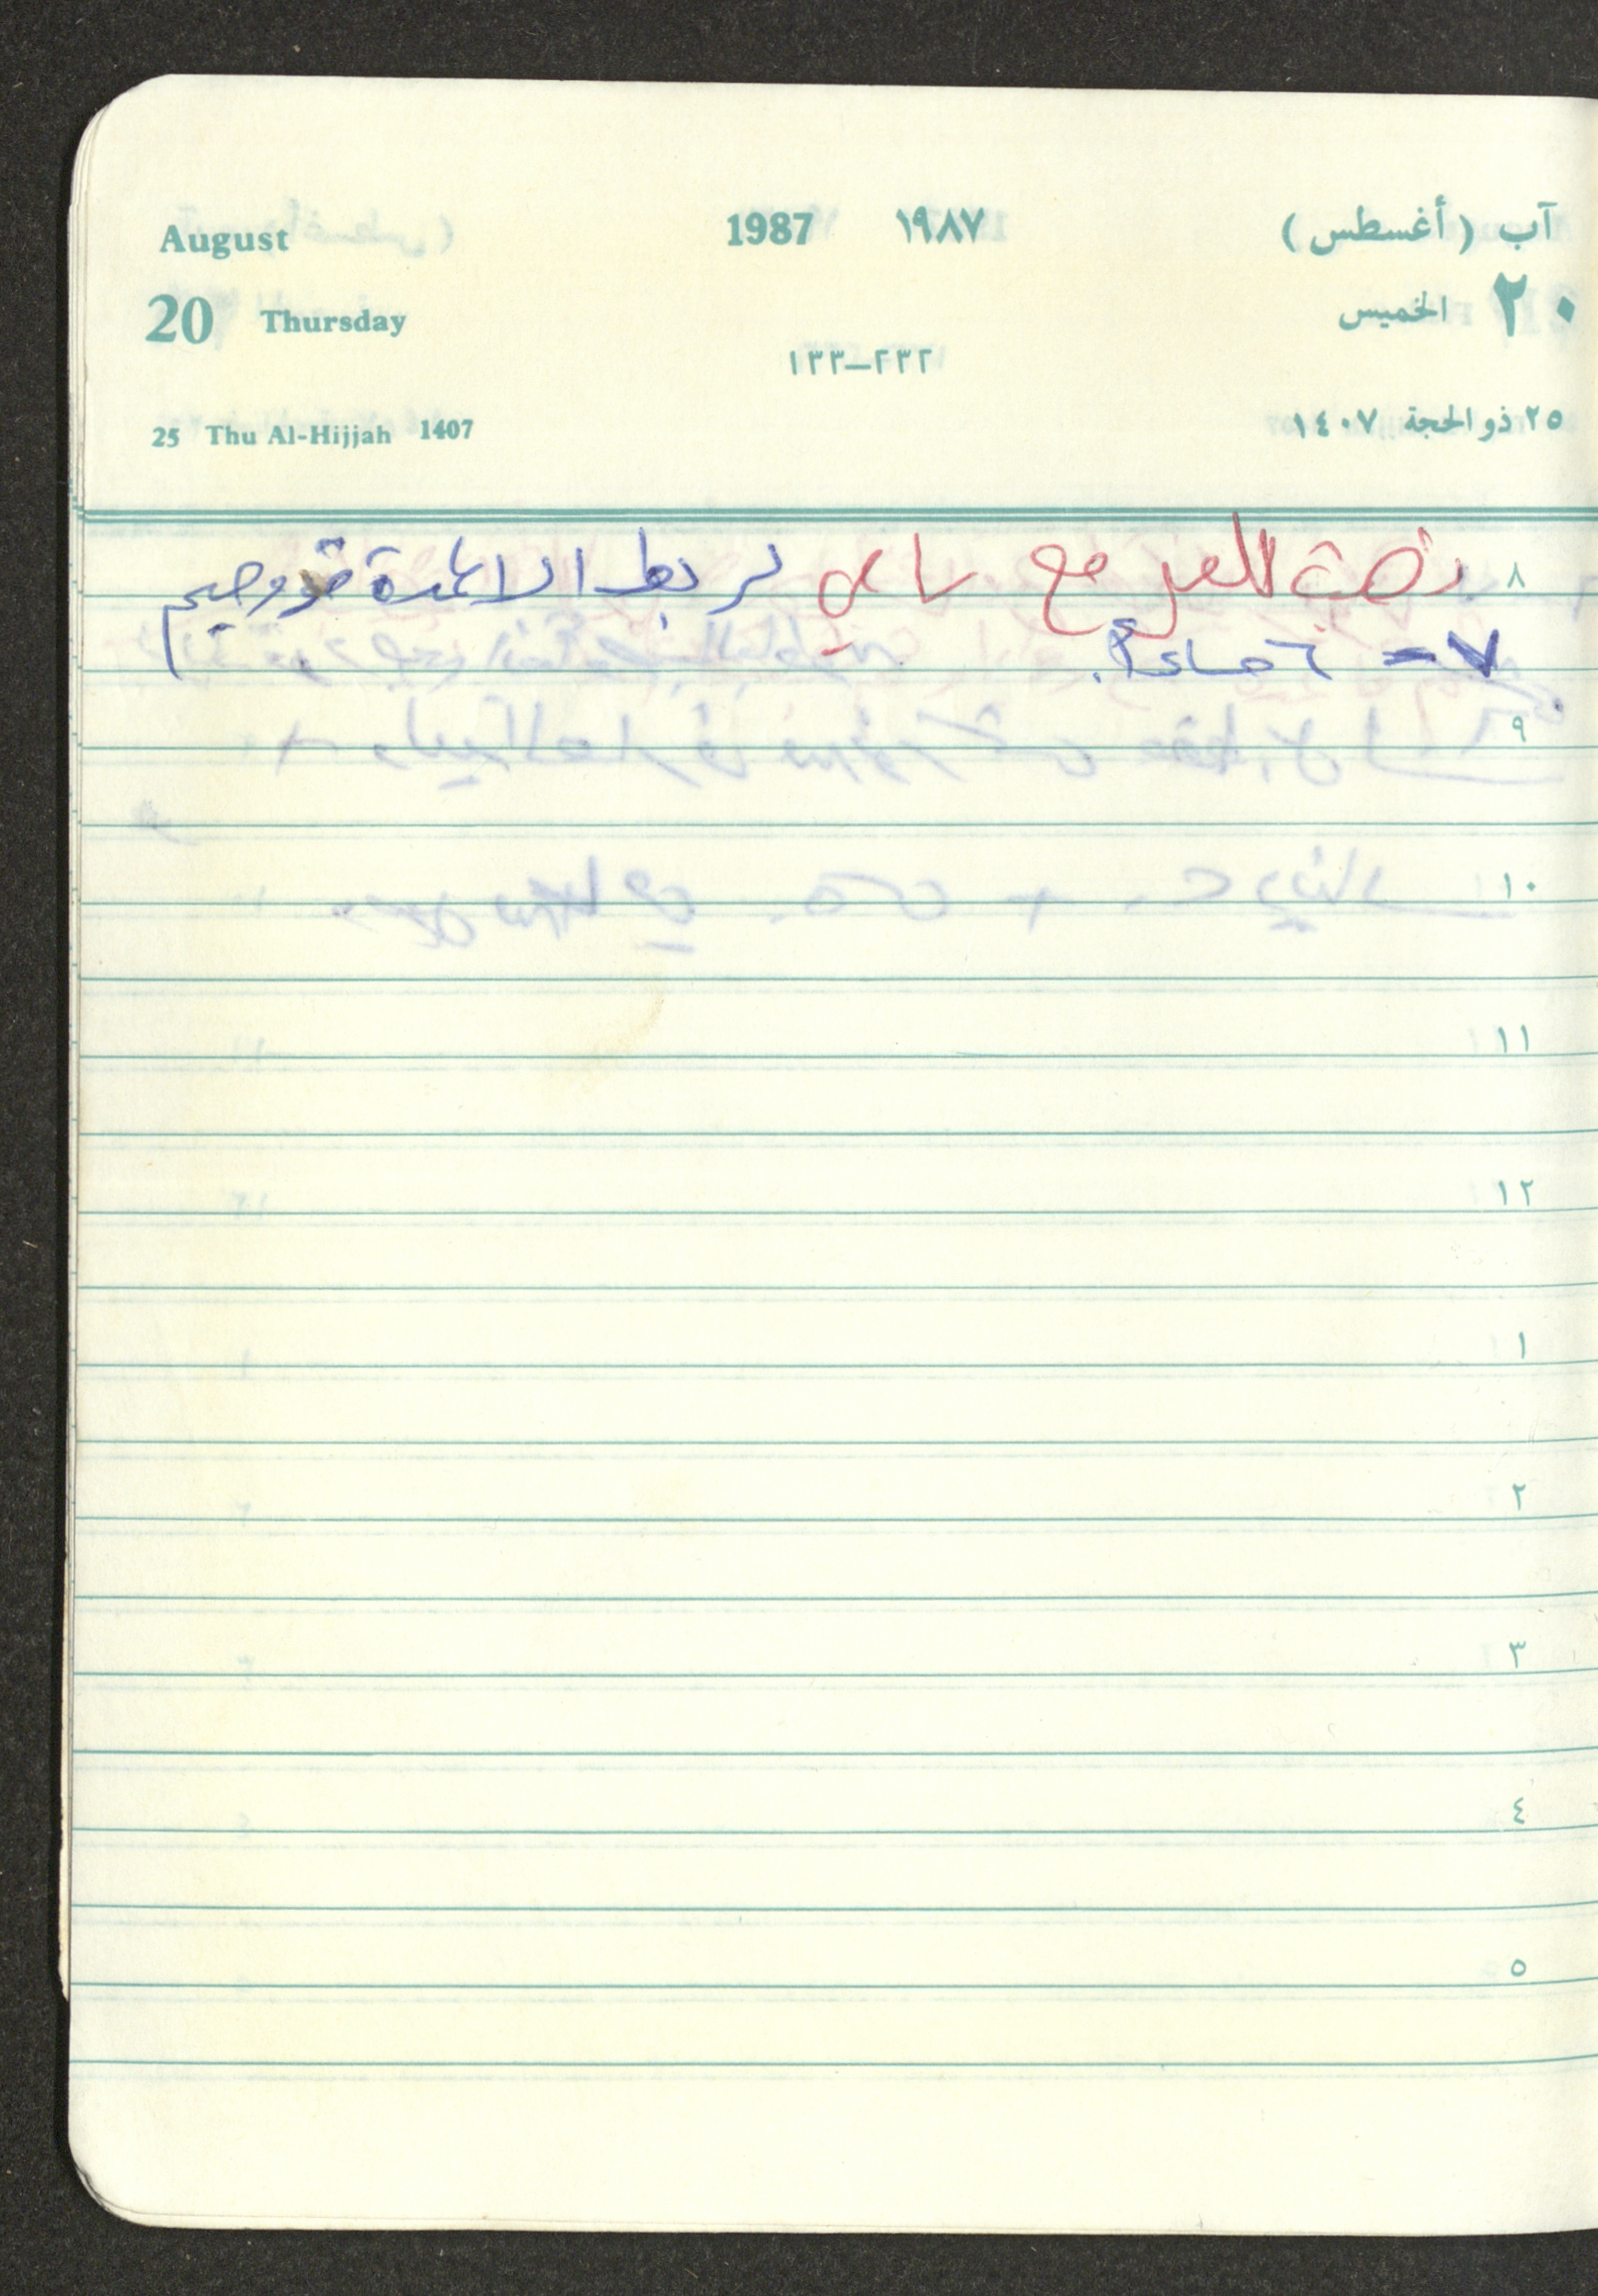 August 1987 ١٩٨٧ آب (أغسطس)
20 Thursday الخميس ٢٠
١٣٣–٢٣٢
25 Thu Al-Hijjah 1407 ٢٥ ذو الحجة ١٤٠٧
٨ للعمل مع لربط الاعمدة
٧ = ٦ مساءً.
٩
١٠
١١
١٢
١
٢
٣
٤
٥